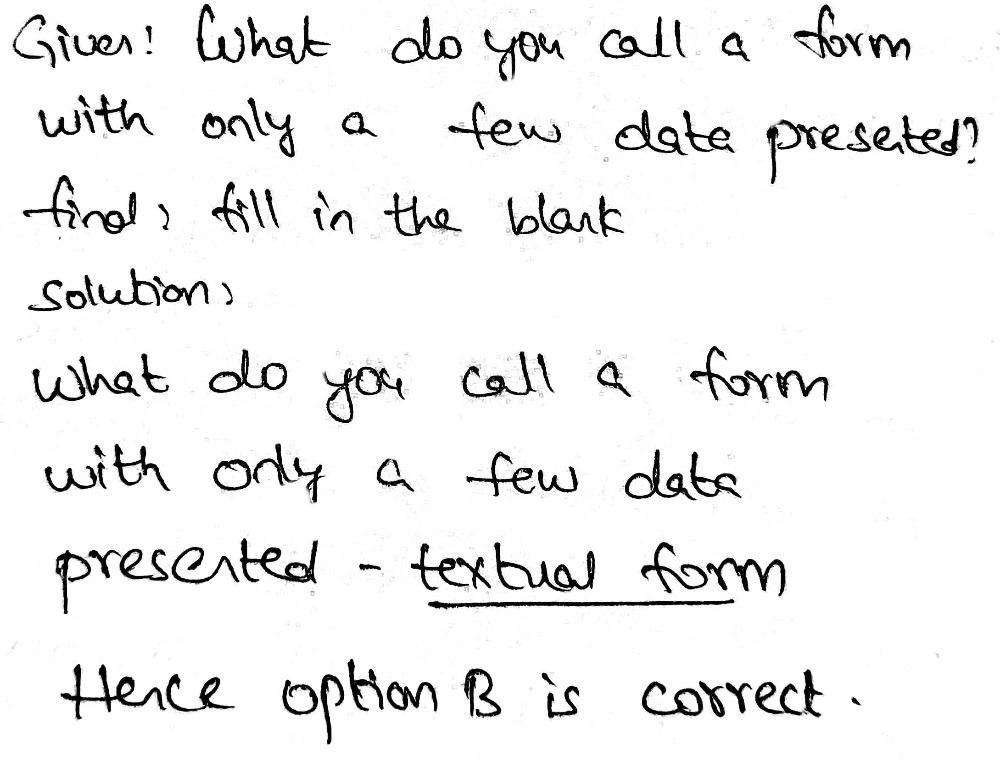 Given! What do you call a form
with only a few data presented?
find, fill in the blank
Solution,
What do you call a form
with only a few data
presented - textual form
Hence option B is correct.